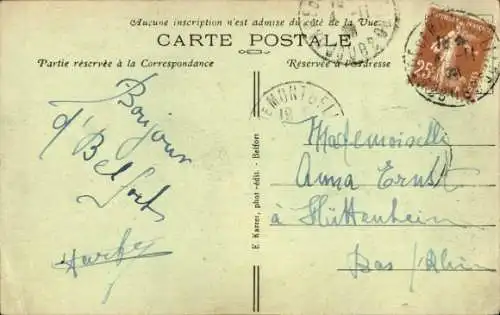 Aucune inscription n'est admise du côté de la Vue.
CARTE POSTALE
Partie réservée à la Correspondance
Réservée à l'adresse
25
Bonjour
d'Belfort
E. Karrer, phot-édit. - Belfort
Mademoiselle
Anna Ernst
à Hüttenheim
Bas/Rhin